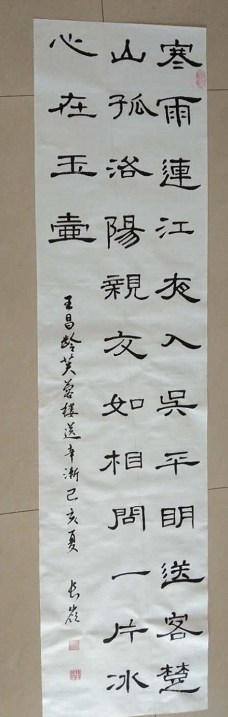 寒雨連江夜入吳平明送客楚
山孤洛陽親友如相問一片冰
心在玉壷
王昌龄芙蓉楼送辛渐己亥夏 长岭